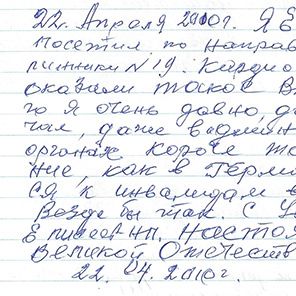 22. Апреля 2010г. Я Е
посетил по направ
линники N 19. Кардио
оказали такое в
го я очень давно, д
чал, даже в админ
органах короче т
ние, как в Герм
ся к инвалидам в
Везде бы так. С
Настоя
Великой Отечеств
22. 04. 2010г.